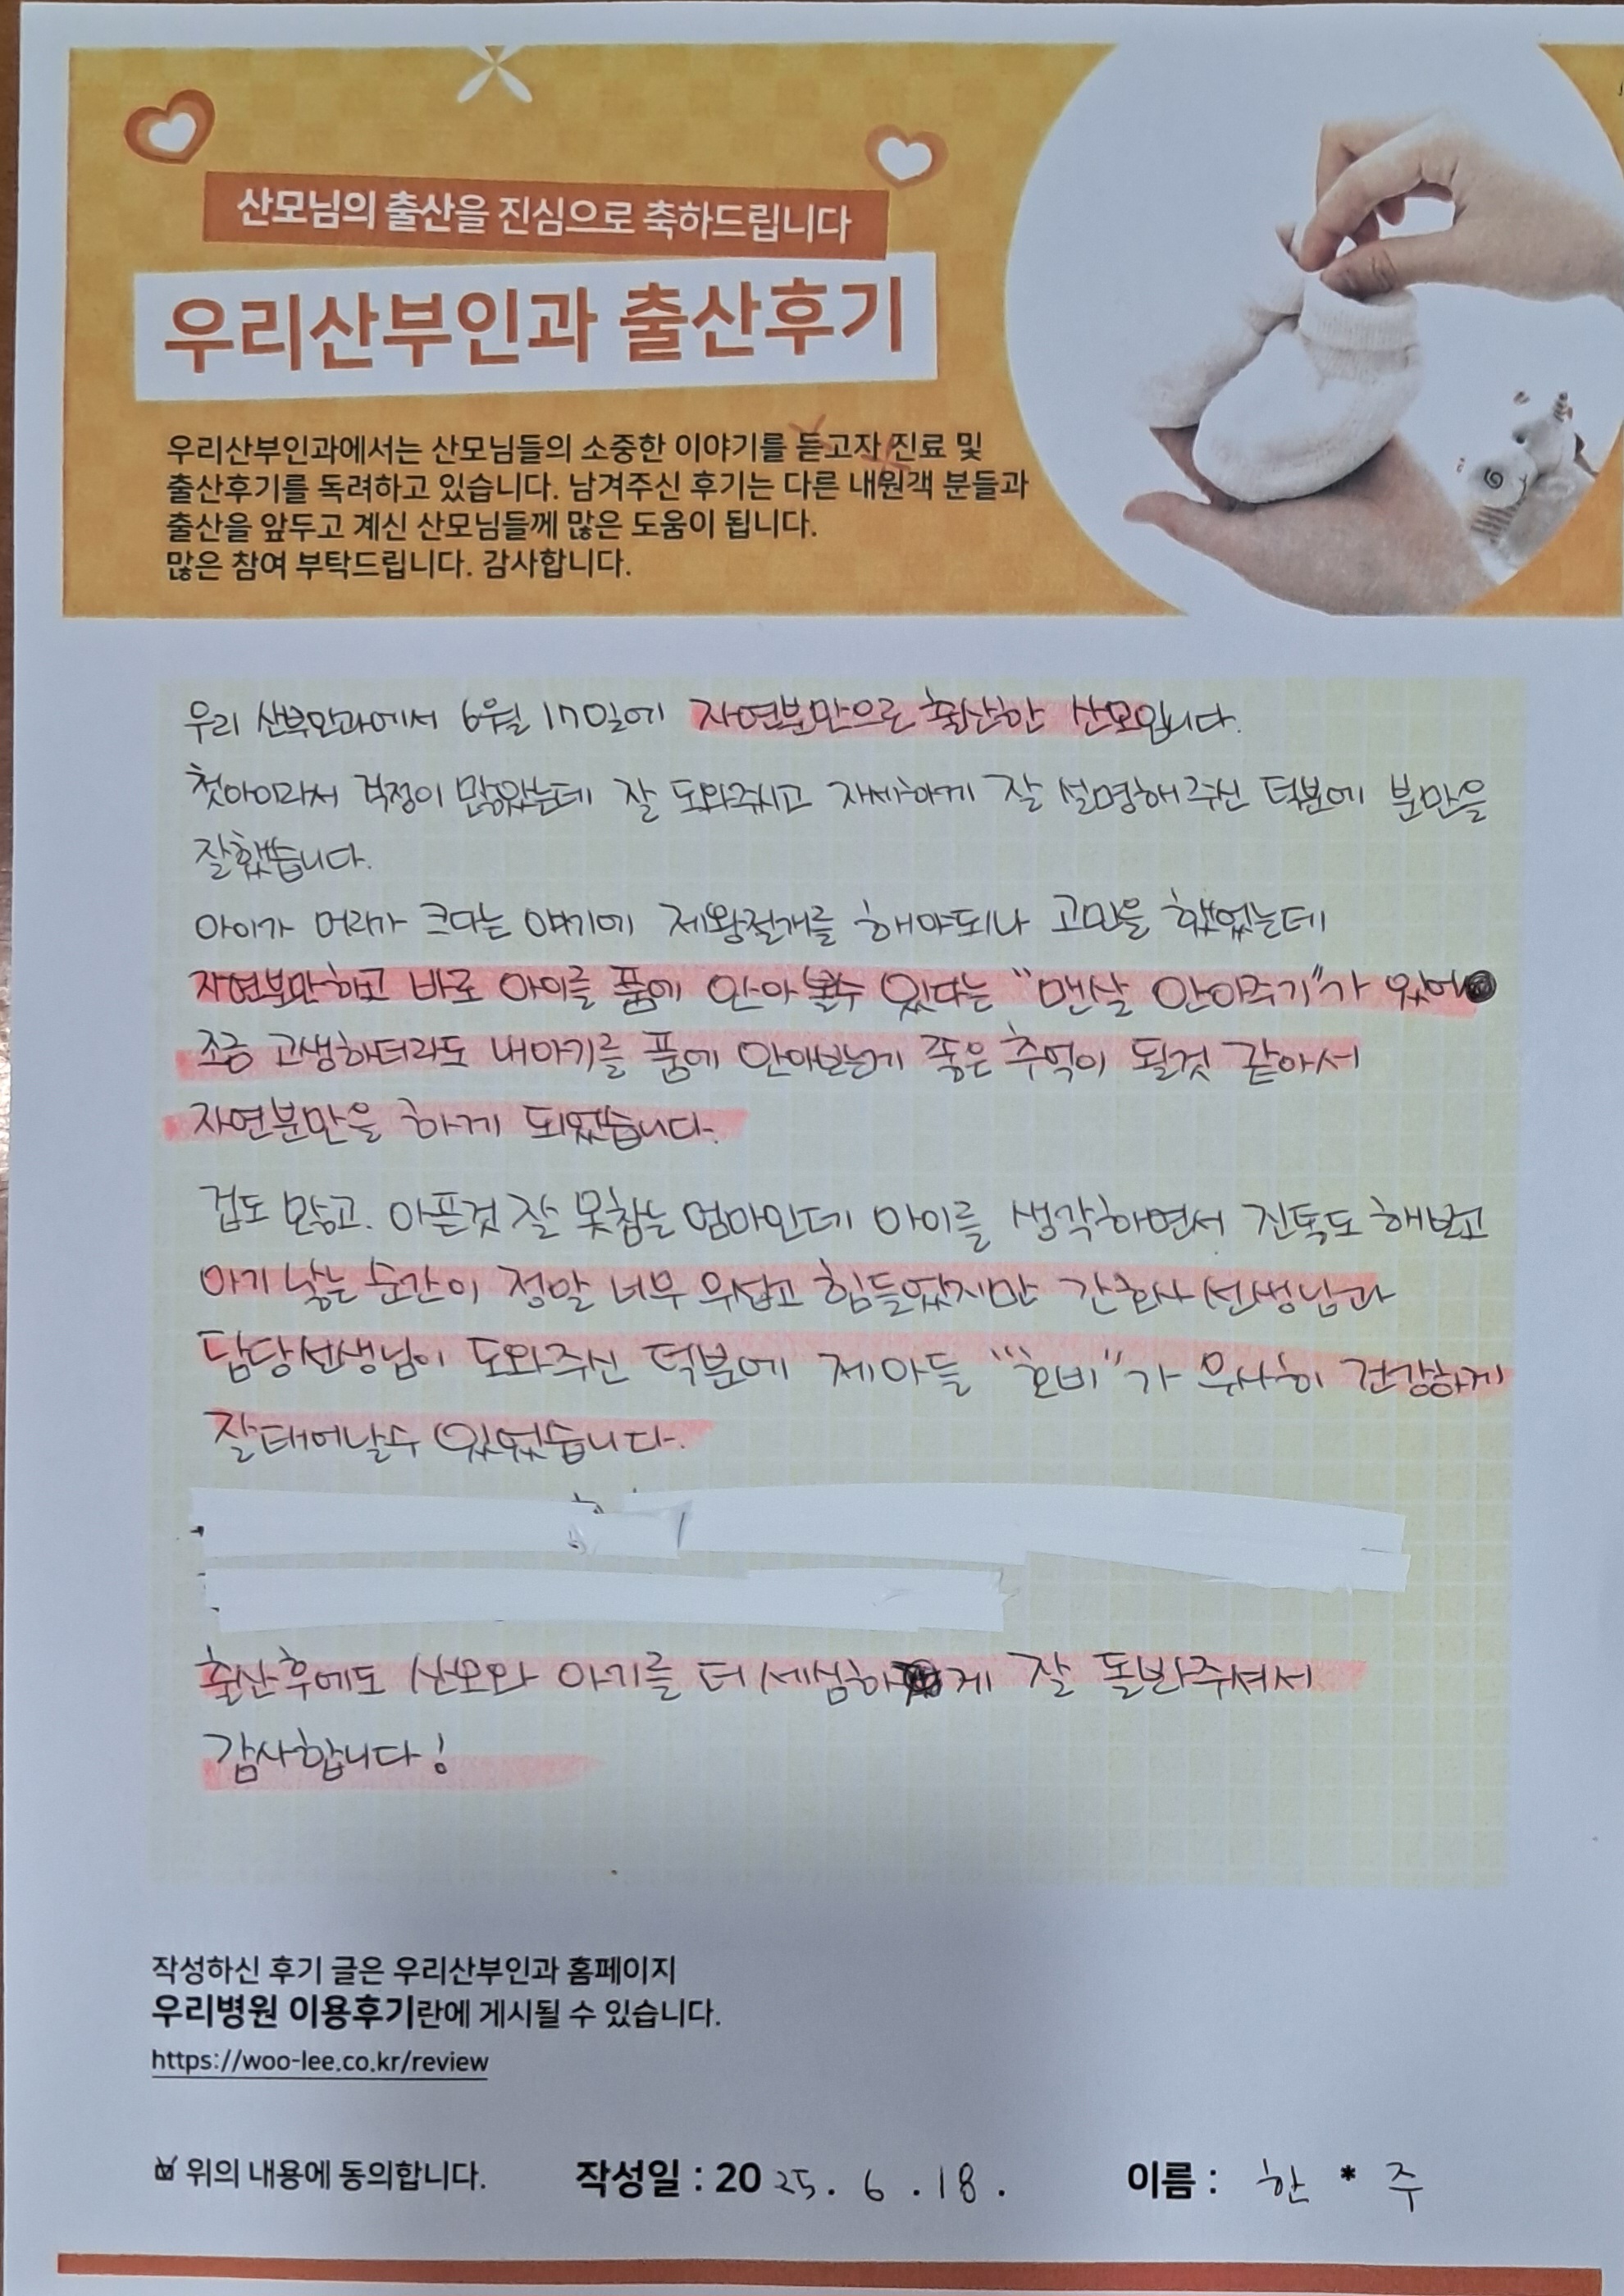 산모님의 출산을 진심으로 축하드립니다
우리산부인과 출산후기
우리산부인과에서는 산모님들의 소중한 이야기를 듣고자 진료 및
출산후기를 독려하고 있습니다. 남겨주신 후기는 다른 내원객 분들과
출산을 앞두고 계신 산모님들께 많은 도움이 됩니다.
많은 참여 부탁드립니다. 감사합니다.
우리 산부인과에서 6월 17일에 자연분만으로 출산한 산모입니다.
첫아이라서 걱정이 많았는데 잘 도와주시고 자세하게 잘 설명해주신 덕분에 분만을
잘했습니다.
아이가 머리가 크다는 얘기에 제왕절개를 해야되나 고민을 했었는데
자연분만하고 바로 아이를 품에 안아 볼수 있다는 "맨살 안아주기"가 있어
조금 고생하더라도 내아기를 품에 안아보는게 좋은 추억이 될것 같아서
자연분만을 하게 되었습니다.
겁도 많고. 아픈것 잘 못참는 엄마인데 아이를 생각하면서 진통도 해보고
아기 낳는 순간이 정말 너무 무섭고 힘들었지만 간호사 선생님과
담당선생님이 도와주신 덕분에 제아들 "호비"가 무사히 건강하게
잘태어날수 있었습니다.
출산후에도 산모와 아기를 더 세심하게 잘 돌봐주셔서
감사합니다!
작성하신 후기 글은 우리산부인과 홈페이지
우리병원 이용후기란에 게시될 수 있습니다.
https://woo-lee.co.kr/review
위의 내용에 동의합니다. 작성일 : 2025. 6. 18. 이름 : 한 * 주